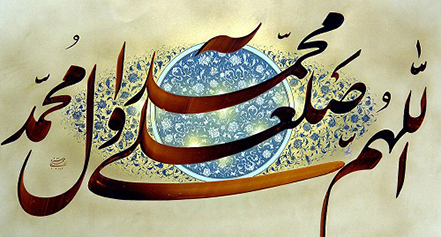 اللّٰهُمَّ صَلِّ عَلی مُحَمَّد وَ آلِ مُحَمَّد